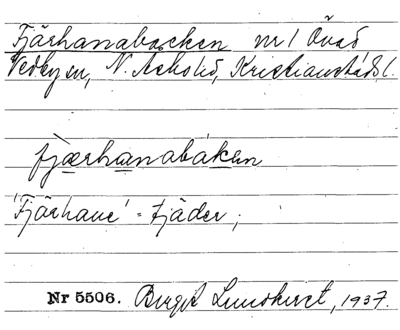 Fjärhanabacken nr 1 Övad
Vedby sn, N. Åsbo hd, Kristianstads l.
fjærhanabaken
'Fjärhane' = tjäder;
Nr 5506. Birgit Lundkvist, 1937.